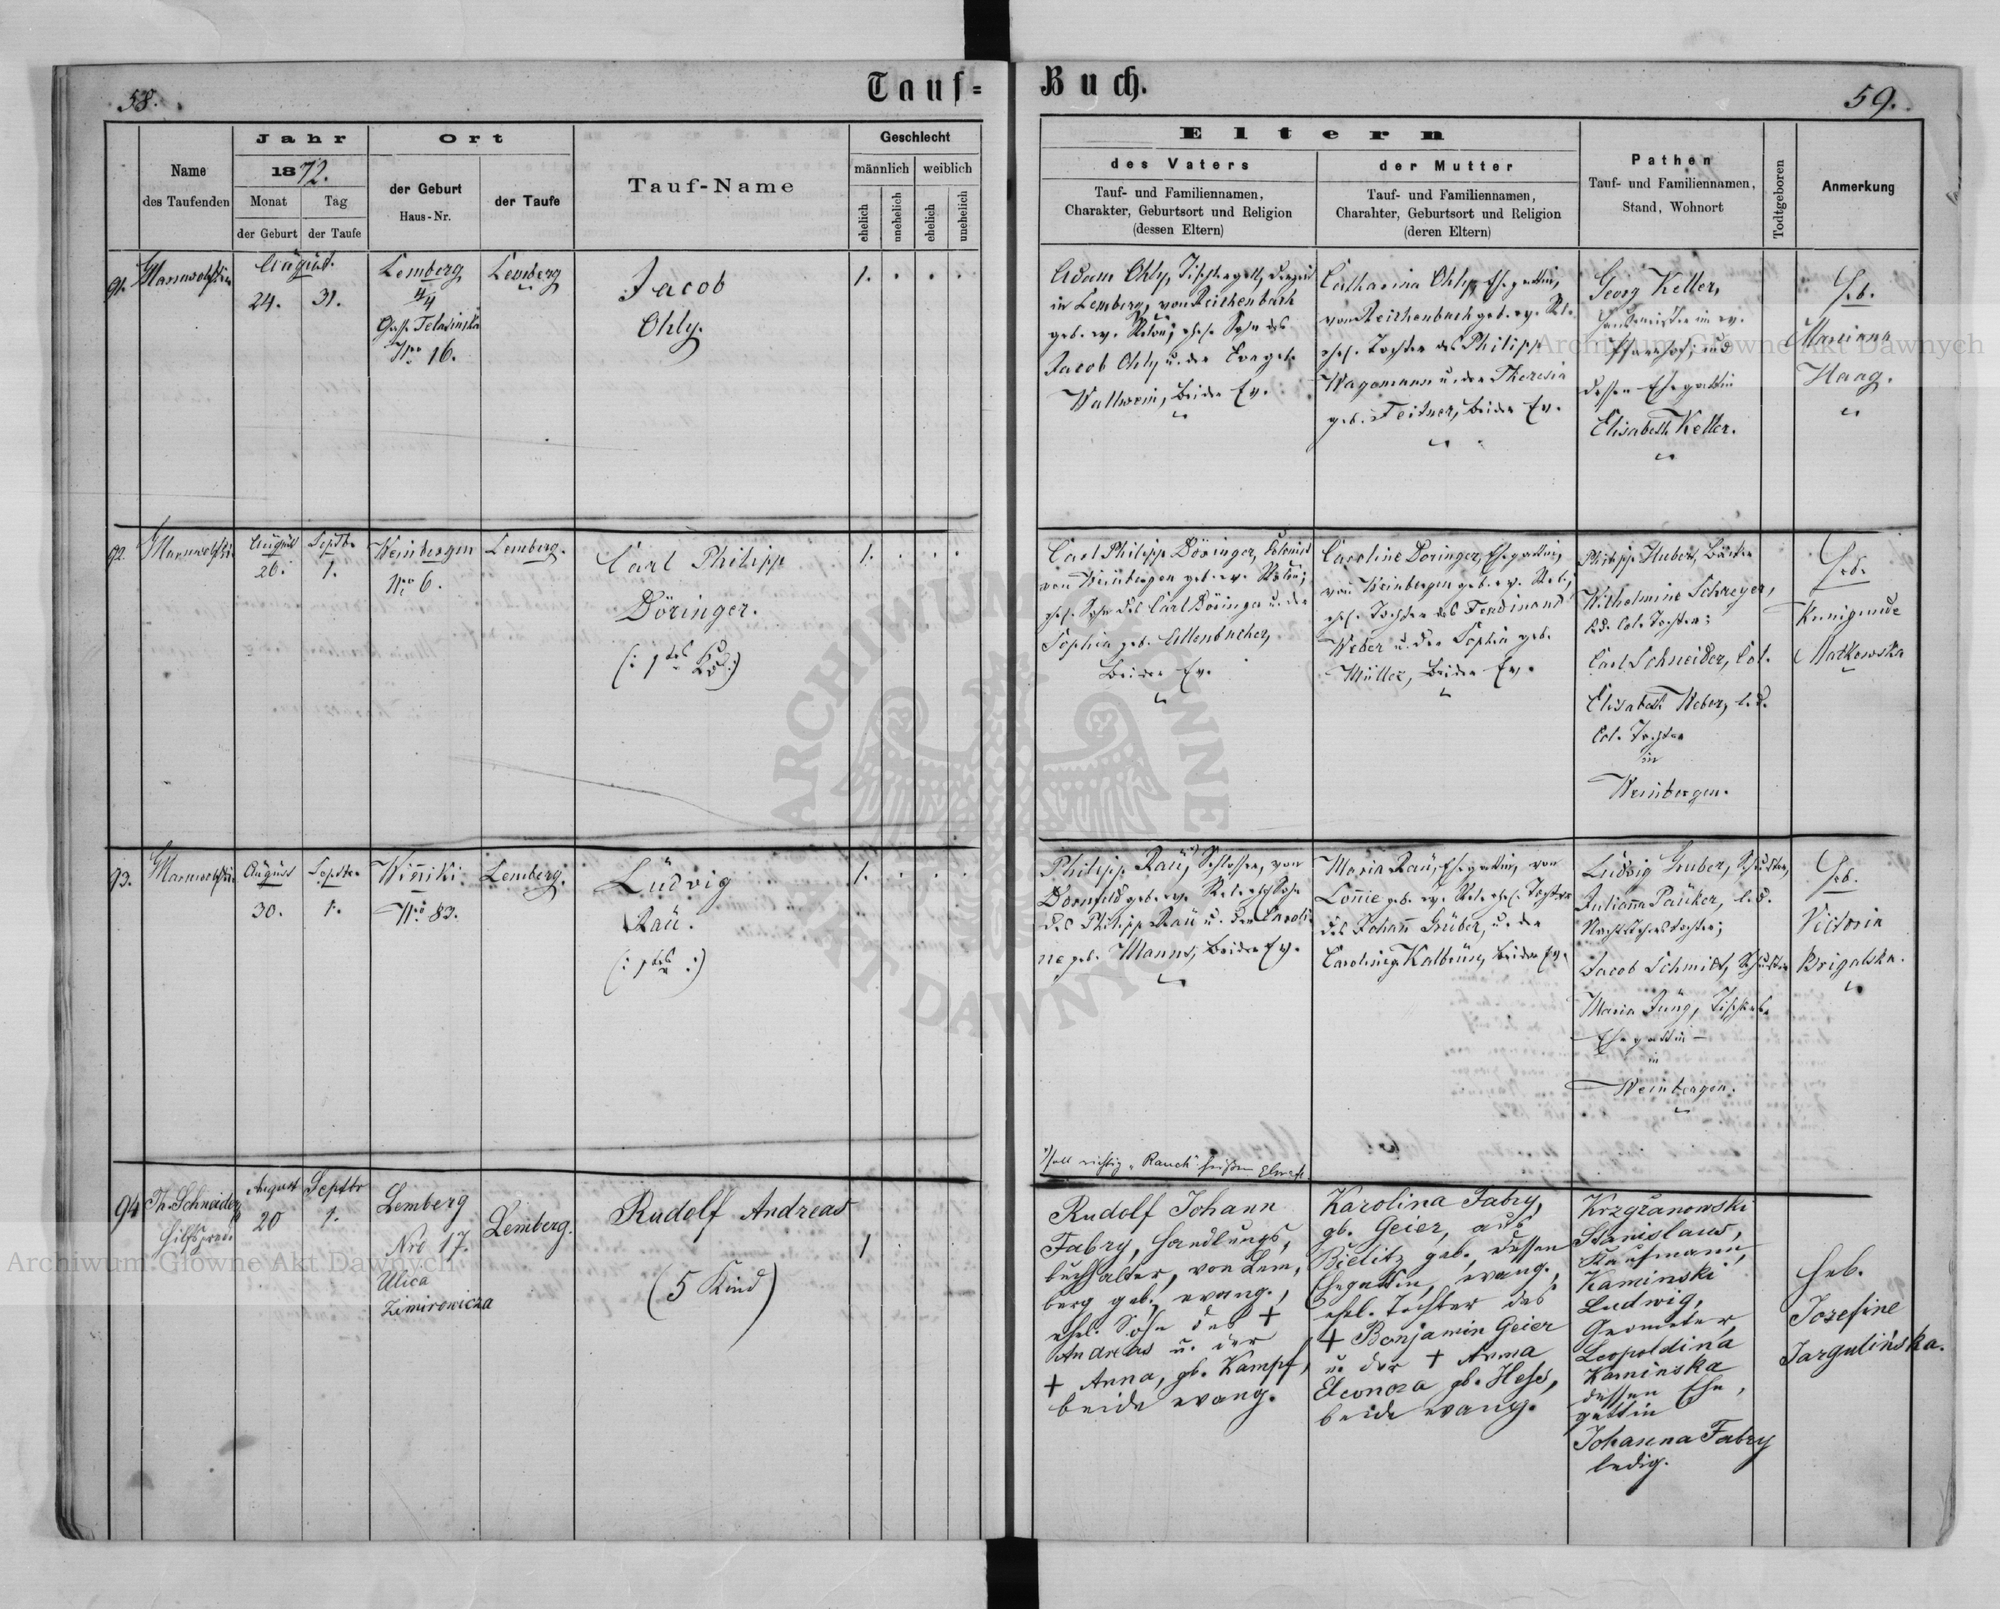 58.
Tauf-
Name
des Taufenden
Jahr
1872.
Monat
Tag
der Geburt
der Taufe
Ort
der Geburt
Haus-Nr.
der Taufe
Tauf-Name
Geschlecht
männlich
weiblich
ehelich
unehelich
ehelich
unehelich
91.
August.
24.
31.
Lemberg
4/4
Nro 16.
Lemberg
Jacob
Ohly.
1.
92.
August
26.
Septbr
1.
Weinbergen
Nro 6.
Lemberg.
Carl Philipp
Döringer.
1.
93.
August
30.
Septbr
1.
Winiki.
Nro 83.
Lemberg.
Ludvig
Rau.
1.
94
Th. Schneider
Hilfspred.
August
20
Septbr
1.
Lemberg
Nro 17.
Ulica
Zimirowicza
Lemberg.
Rudolf Andreas
(5 Kind)
1
Buch.
59.
Eltern
des Vaters
Tauf- und Familiennamen,
Charakter, Geburtsort und Religion
(dessen Eltern)
der Mutter
Tauf- und Familiennamen,
Charahter, Geburtsort und Religion
(deren Eltern)
Pathen
Tauf- und Familiennamen,
Stand, Wohnort
Todtgeboren
Anmerkung
Adam Ohly, Tischlergesell, derzeit
in Lemberg, von Reichenbach
geb. ev. Relion; ehel. Sohn des
Jacob Ohly u. der
Wallwein, beide Ev.
Catharina Ohly, Ehegattin,
von Reichenbach geb. ev. Rel.
ehel. Tochter des Philipp
Wagemann u. der Theresia
geb. beide Ev.
Georg Keller,
Hausmeister im ev.
Pfarrhof; und
dessen Ehegattin
Elisabeth Keller.
Heb.
Marianna
Haag.
Carl Philipp Döringer, Colonist
von Weinbergen geb. ev. Relion;
ehel. Sohn des Carl Döringer u. der
Sophia geb. Ellenbacher,
beide Ev.
Caroline Döringer, Ehegattin,
von Weinbergen geb. ev. Rel.;
ehel. Tochter des Ferdinand
Weber u. der Sophia geb.
Müller, beide Ev.
Philipp Huber,
Wilhelmine Schreyer,
led. Col. Tochter;
Carl Schneider, Col.
Elisabeth Weber, led.
Col. Tochter
in
Weinbergen.
Heb.
Kunigunde
Matkowska
Philipp Rau, Schlosser, von
Dornfeld geb. ev. Rel. ehel. Sohn
des Philipp Rau u. der Caroli-
ne geb. Manns, beide Ev.
Maria Rau, Ehegattin, von
geb. ev. Rel. ehel. Tochter
des Johann Huber, u. der
Caroline beide Ev.
Ludvig Huber,
Julianna Pauker, led.
Jacob Schmidt,
Maria Jung,
Ehegattin
in
Weinbergen.
Heb.
Victoria
Brigalska.
soll richtig „Rauch" heißen
Rudolf Johann
Fabry, Handlungs,
buchhalter, von Lem,
berg geb., evang.,
ehel. Sohn des +
Andreas u. der
+ Anna, gb. Kampf,
beide evang.
Karolina Fabry,
gb. Geier, aus
Bielitz geb., dessen
Ehegattin, evang.,
ehel. Tochter des
+ Benjamin Geier
u. der + Anna
Eleonora gb. Hess,
beide evang.
Krzyżanowski
Stanislaus,
Kaufmann,
Kaminski
Ludwig,
Geometer,
Leopoldina
Kaminska
dessen Ehe,
gattin
Johanna Fabry
ledig.
Heb.
Josefine
Jargulińska.
Archiwum Główne Akt Dawnych
Archiwum Główne Akt Dawnych
ARCHIWUM GŁÓWNE AKT DAWNYCH